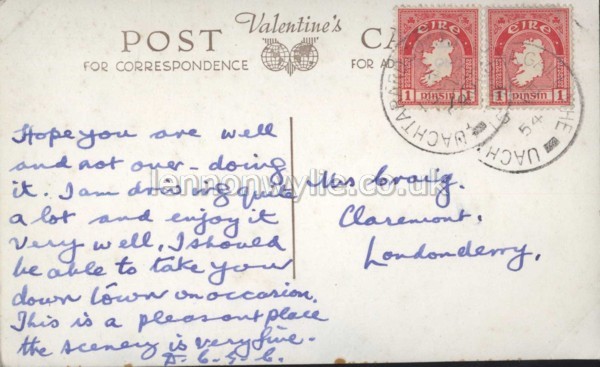 Valentine's
POST CA
FOR CORRESPONDENCE FOR AD
EIRE EIRE
1 PINGIN 1 1 PINGIN 1
UACHTAR
UACH
54
Hope you are well
and not over-doing
it. I am driving quite
a lot and enjoy it
very well. I should
be able to take you
down town on occasion.
This is a pleasant place
the scenery is very fine.
lennonwylie.co.uk
Mrs Craig.
Claremont,
Londonderry,